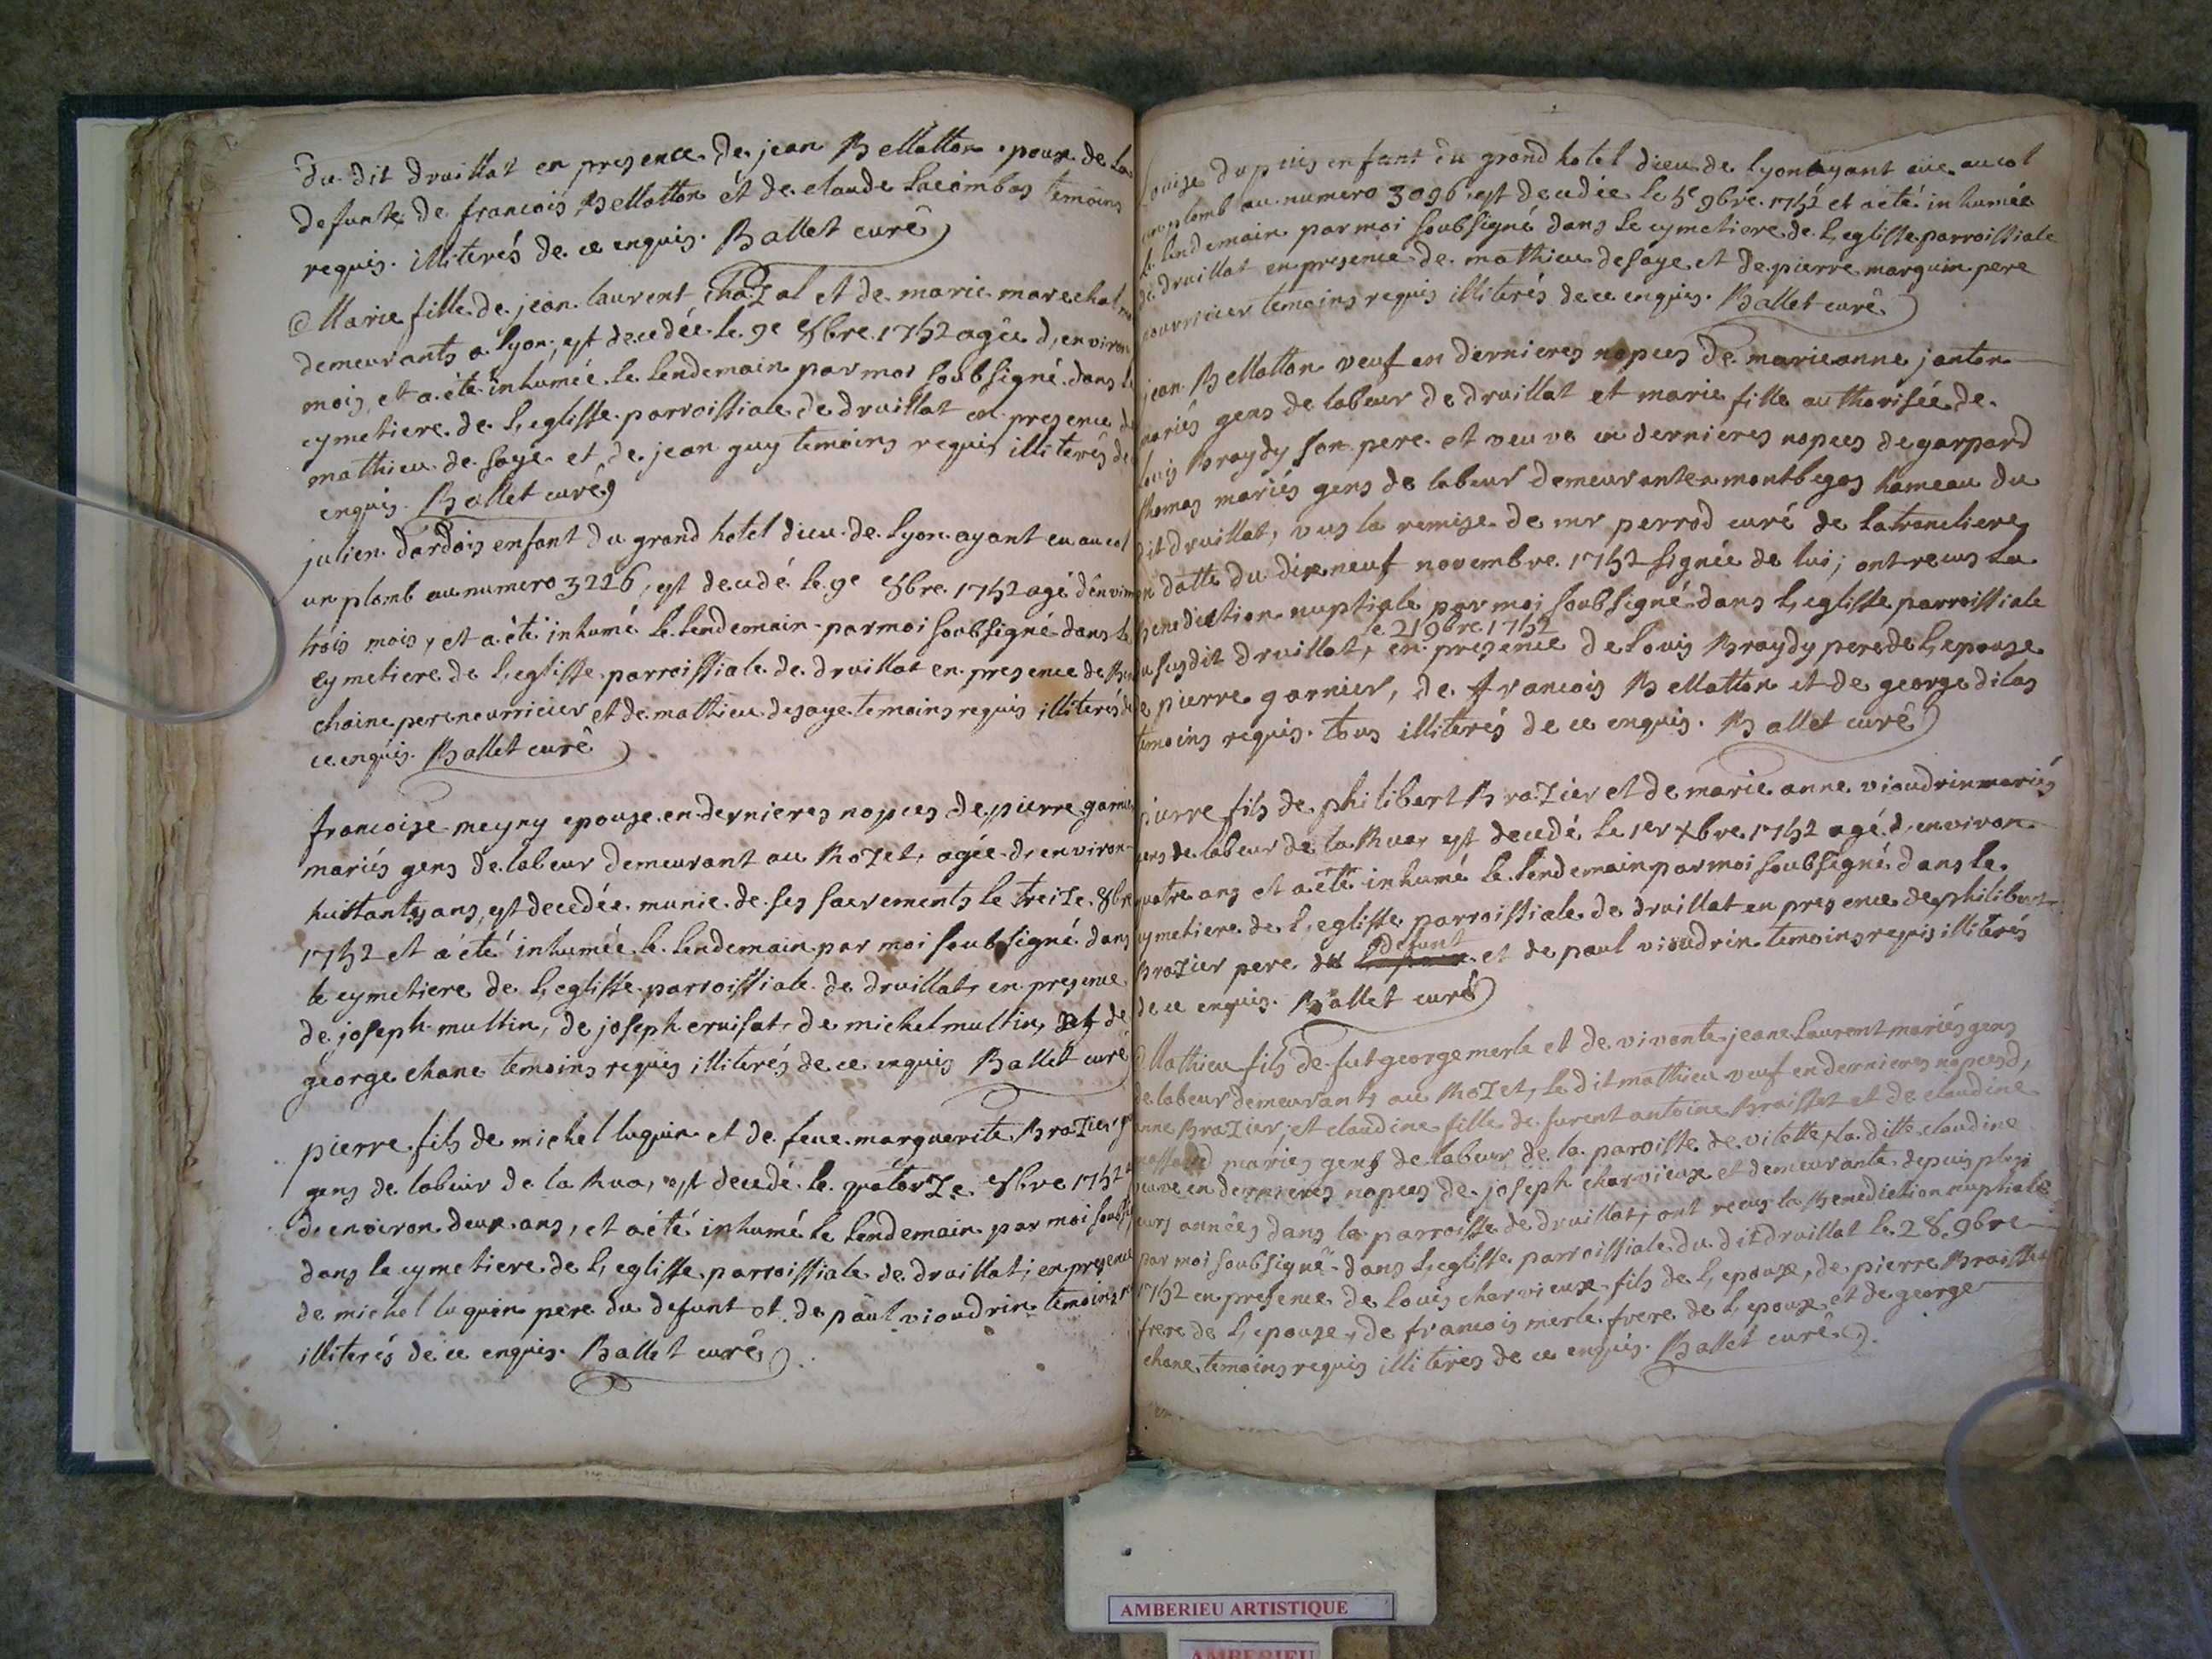 du dit druillat en presence de jean Bellatton epoux de la
defunte de francois Bellatton et de claude Lacombas temoins
requis illiterés de ce enquis. Ballet curé
Marie fille de jean laurent chaZal et de marie marechal
demeurants a Lyon, est decedée le 9e 8bre 1752 agée d'environ
mois, et a été inhumée le lendemain par moi soubsigné dans le
cymetiere de L'eglisse parroissiale de druillat en presence de
mathieu desaye et de jean guy temoins requis illiterés de
enquis. Ballet curé
julien dardois enfant du grand hotel dieu de Lyon ayant eu au col
un plomb au numero 3226, est decedé le 9e 8bre 1752 agé d'environ
trois mois, et a été inhumé le lendemain par moi soubsigné dans le
cymetiere de L'eglisse parroissiale de druillat en presence de
chaine pere nourricier et de mathieu desaye temoins requis illiterés de
ce enquis. Ballet curé
francoise meyny epouse en dernieres nopces de pierre garnier
mariés gens de labeur demeurant au RoZet, agée d'environ
huittante ans, est decedée munie de ses sacrements le treiZe 8bre
1752 et a été inhumée le lendemain par moi soubsigné dans
le cymetiere de L'eglisse parroissiale de druillat, en presence
de joseph multin, de joseph cruisat, de michel multin, et de
george chane temoins requis illiterés de ce enquis Ballet curé
pierre fils de michel luquin et de feue marguerite BraZier
gens de labeur de la Rua, est decedé le quatorZe 8bre 1752
d'environ deux ans, et a été inhumé le lendemain par moi soubsi
dans le cymetiere de L'eglisse parroissiale de druillat, en presence
de michel luquin pere du defunt et de paul vioudrin temoins
illiterés de ce enquis. Ballet curé
Louise dupuis enfant du grand hotel dieu de Lyon ayant eue au col
un plomb au numero 3096 est decedée le 5e 9bre 1752 et a été inhumée
le lendemain par moi soubsigné dans le cymetiere de L'eglisse parroissiale
de druillat en presence de mathieu desaye et de pierre marguin pere
nourricier temoins requis illiterés de ce enquis. Ballet curé
jean Bellatton veuf en dernieres nopces de marieanne janton
mariés gens de labeur de druillat et marie fille authorisée de
Louis Braydy son pere et veuve en dernieres nopces de gaspard
thomas mariés gens de labeur demeurante a montbegos hameau du
dit druillat, vus la remise de mr perrod curé de la trancliere
en datte du dix neuf novembre 1752 signée de lui; ont recus la
benediction nuptiale par moi soubsigné dans L'eglisse parroissiale
le 21 9bre 1752
du susdit druillat, en presence de Louis Braydy pere de L'epouse
de pierre garnier, de francois Bellatton et de george dilas
temoins requis. tous illiterés de ce enquis. Ballet curé
pierre fils de philibert BraZier et de marie anne vioudrin mariés
gens de labeur de la Rua, est decedé le 1er xbre 1752 agé d'environ
quatre ans et a été inhumé le lendemain par moi soubsigné dans le
cymetiere de L'eglisse parroissiale de druillat en presence de philibert
defunt
BraZier pere du et de paul vioudrin temoins requis illiterés
de ce enquis. Ballet curé
Mathieu fils de fut george merle et de vivante jeane Laurent mariés gens
de labeur demeurants au RoZet, le dit mathieu veuf en dernieres nopces d'
anne BraZier, et claudine fille de furent antoine Braisset et de claudine
mariés gens de labeur de la paroisse de vilette la ditte claudine
veuve en dernieres nopces de joseph charvieux et demeurante depuis plusi
eurs années dans la parroisse de druillat, ont recus la Benediction nuptiale
par moi soubsigné dans L'eglisse parroissiale du dit druillat le 28 9bre
1752 en presence de Louis charvieux fils de L'epouse, de pierre Braisset
frere de L'epouse, de francois merle frere de L'epoux et de george
chane temoins requis illiterés de ce enquis. Ballet curé
AMBERIEU ARTISTIQUE
AMBERIEU